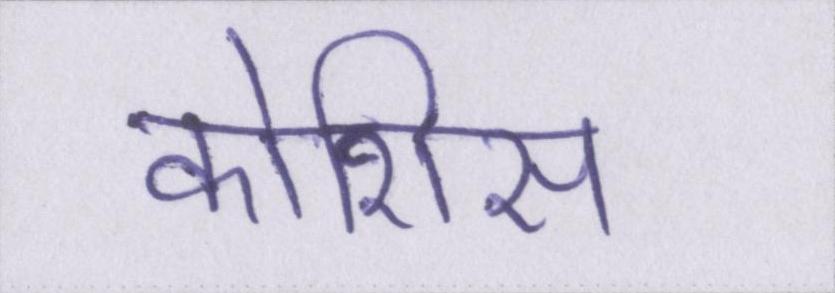 कोशिस